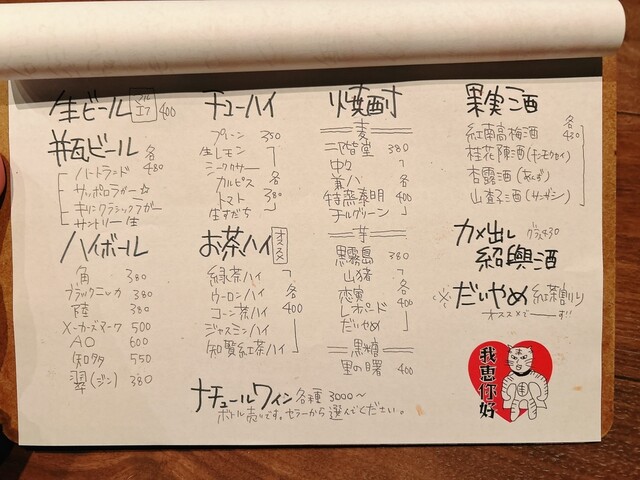 生ビール マルエフ 400
瓶ビール 各480
ハートランド
サッポロラガー☆
キリンクラシックラガー
サントリー生
ハイボール
角 380
ブラックニッカ 380
陸 380
メーカーズマーク 500
AO 600
知多 550
翠(ジン) 380
チューハイ
プレーン 350
生レモン
シークヮサー
カルピス 各
トマト 380
生すだち
お茶ハイ オススメ
緑茶ハイ
ウーロンハイ 各
コーン茶ハイ 400
ジャスミンハイ
知覧紅茶ハイ
焼酎
麦
二階堂 380
中々
兼八 各
特蒸泰明 400
チルグリーン
芋
黒霧島 380
山猪
恋寅 各
レオパード 400
だいやめ
黒糖
里の曙 400
果実酒
各430
紅南高梅酒
桂花陳酒(キンモクセイ)
杏露酒(あんず)
山査子酒(サンザシ)
カメ出し グラス430
紹興酒
だいやめ 紅茶割り
オススメでーーす!!
ナチュールワイン 各種 3000〜
ボトル売りです。セラーから選んでください。
我恵你好